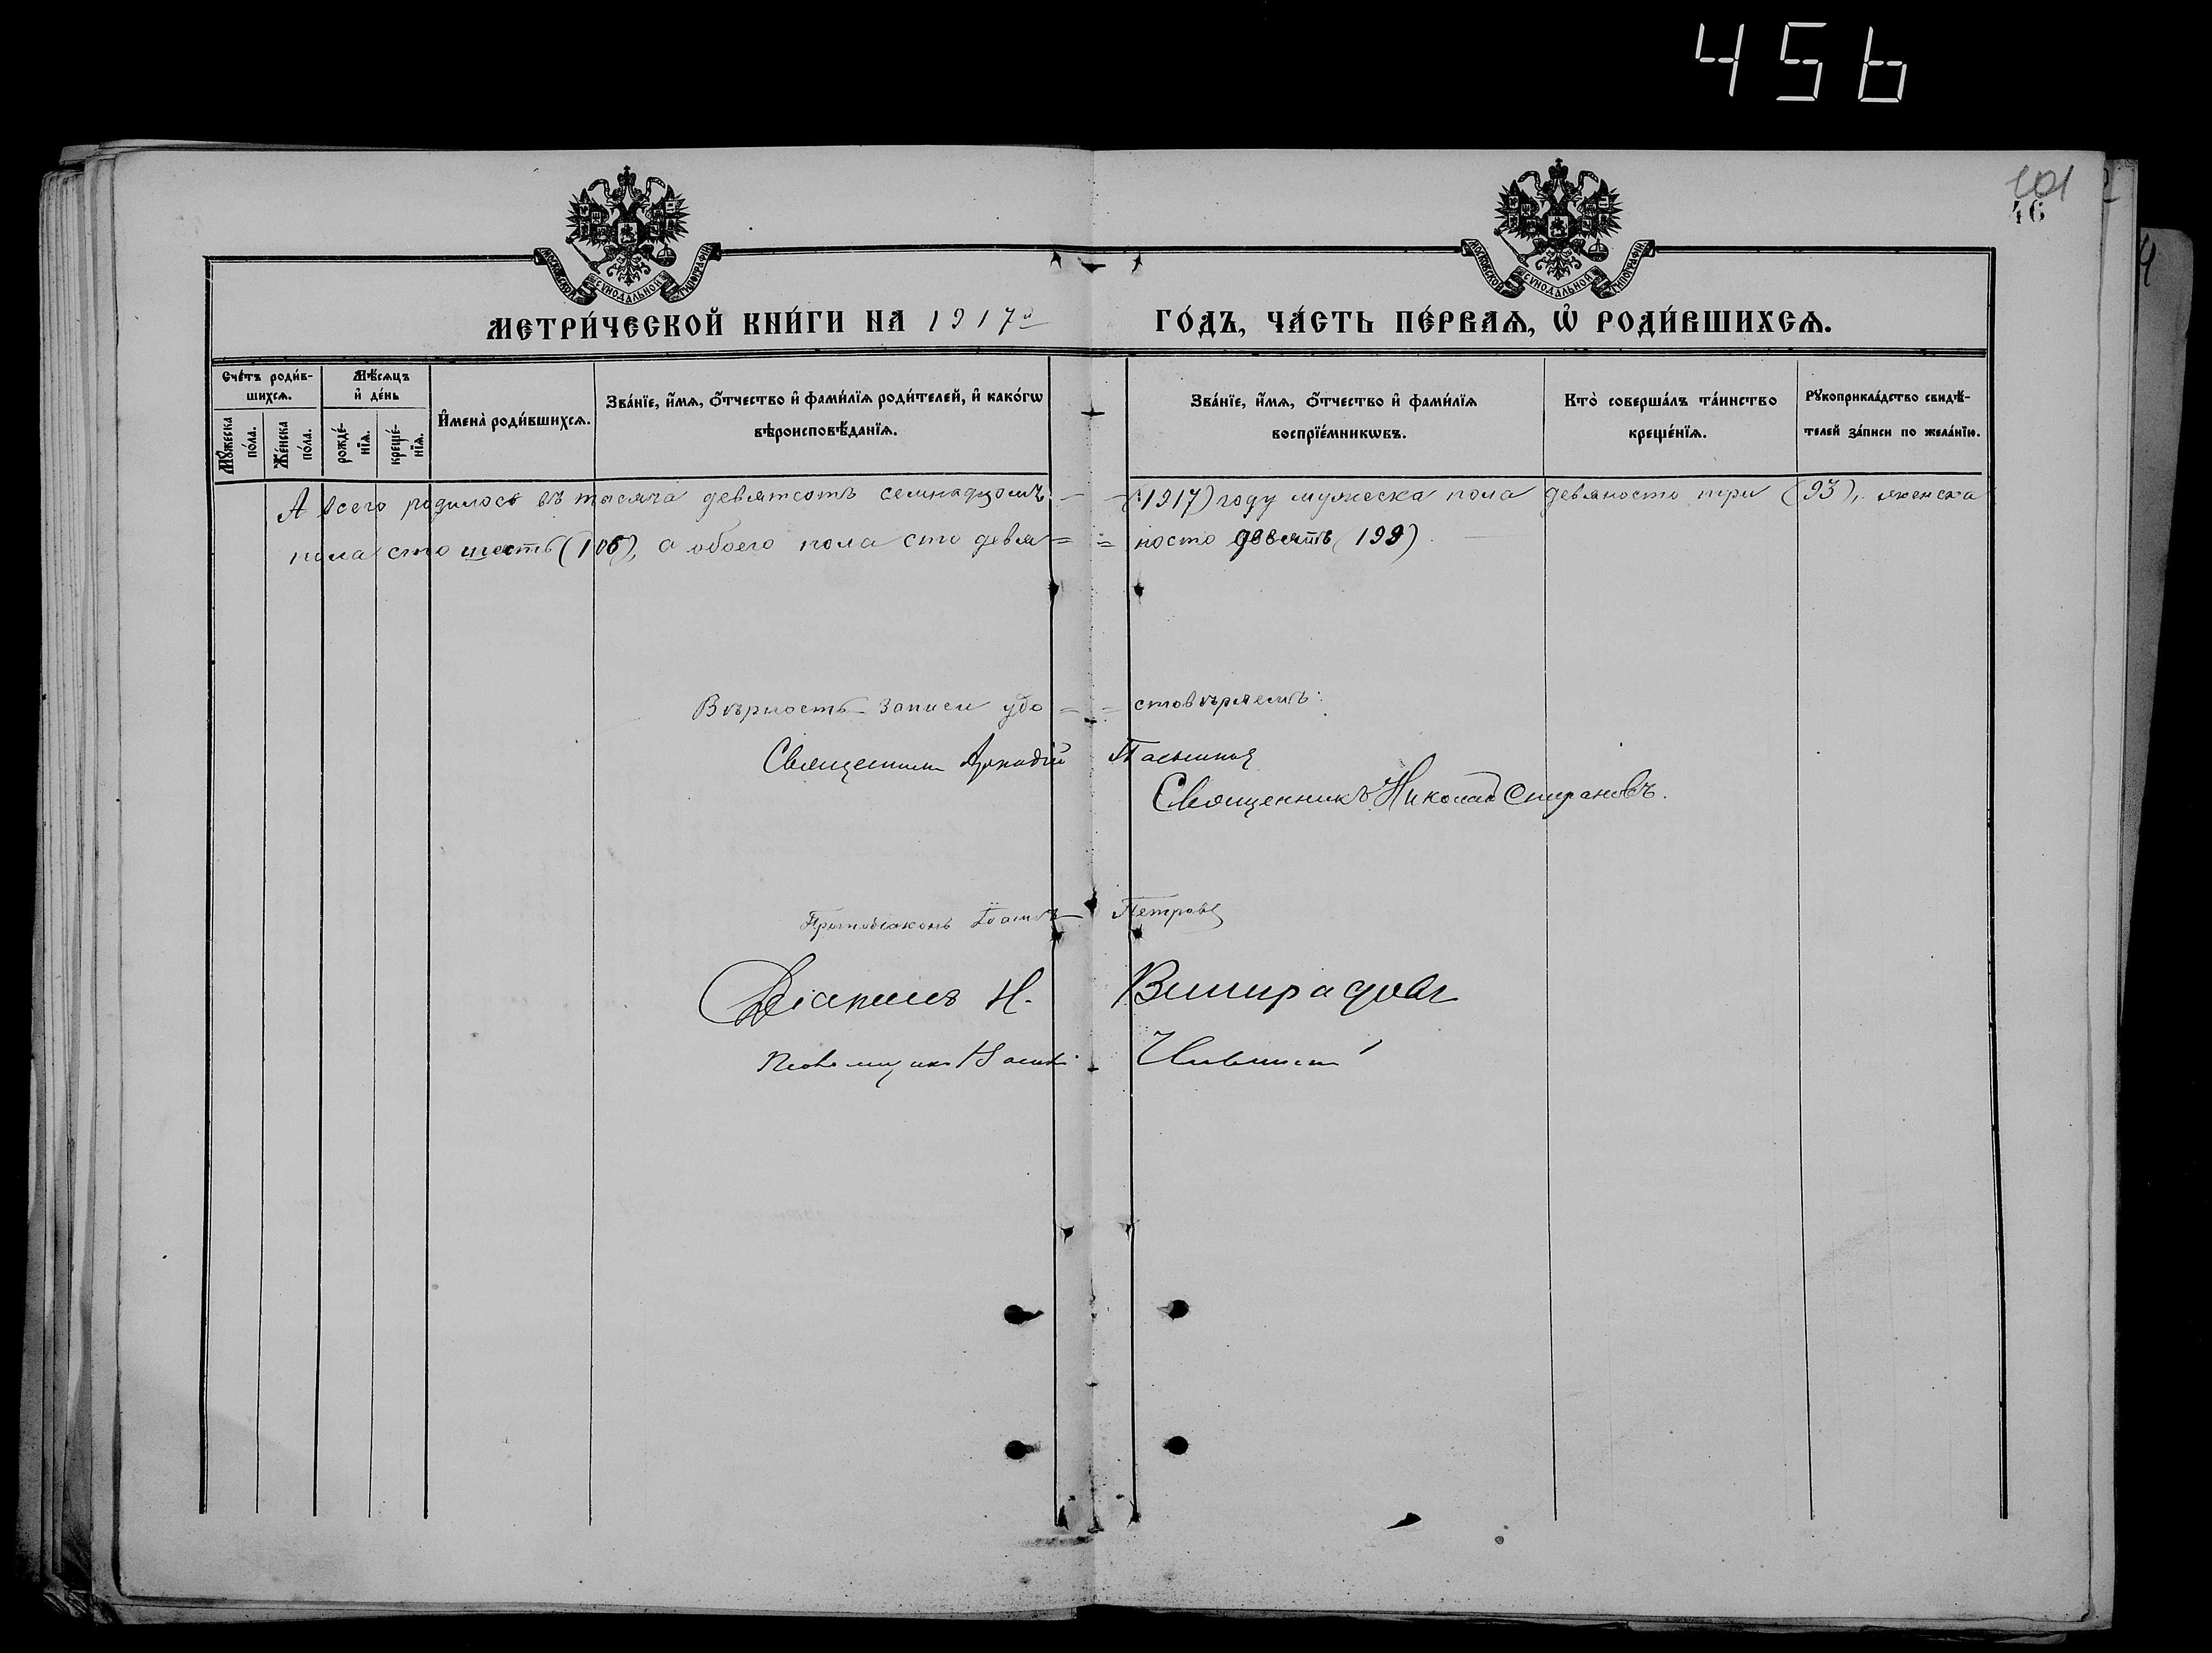 456
101
46
МОСКОВСКОЙ СѴНОДАЛЬНОЙ ТИПОГРАФІИ
МОСКОВСКОЙ СѴНОДАЛЬНОЙ ТИПОГРАФІИ
МЕТРИ́ЧЕСКОЙ КНИ́ГИ НА 1917й ГО́ДЪ, ЧА́СТЬ ПЕ́РВАѦ, Ѽ РОДИ́ВШИХСѦ.
Сче́тъ роди́в-
шихсѧ.
Мѣ́сѧцъ
и҆ де́нь
Мꙋ́жеска по́ла.
Же́нска по́ла.
рожде́-нїѧ.
креще́-нїѧ.
И҆мена̀ роди́вшихсѧ.
Зва́нїе, и҆́мѧ, ѻ҆́тчество и҆ фами́лїѧ роди́телей, и҆ како́гѡ
вѣроисповѣ́данїѧ.
Зва́нїе, и҆́мѧ, ѻ҆́тчество и҆ фами́лїѧ
воспрїе́мникѡвъ.
Кто̀ соверша́лъ та́инство
креще́нїѧ.
Рꙋкоприкла́дство свидѣ́-
телей за́писи по жела́нїю.
А всего родилось въ тысяча девятсотъ семнадцомъ (1917) году мужеска пола девяносто три (93), женска
пола сто шесть (106), а обоего пола сто девя= =носто девять (199).
Вѣрность записи удо= =стовѣряемъ:
Священникъ Аркадій
Священникъ Николай Спирановъ.
Протодіаконъ Іоаннъ Петровъ
Діаконъ Н. Виноградовъ
Псаломщикъ